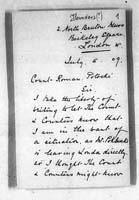 2 North Bruton Mews
Berkeley Square
London W.
July 6. 09.
Count Roman Potocki
Sir
I take the liberty of
writing to let the Count
& Countess know that
I am in the want of
a situation, as Mr
is leaving London directly
so I thought the Count
& Countess might know